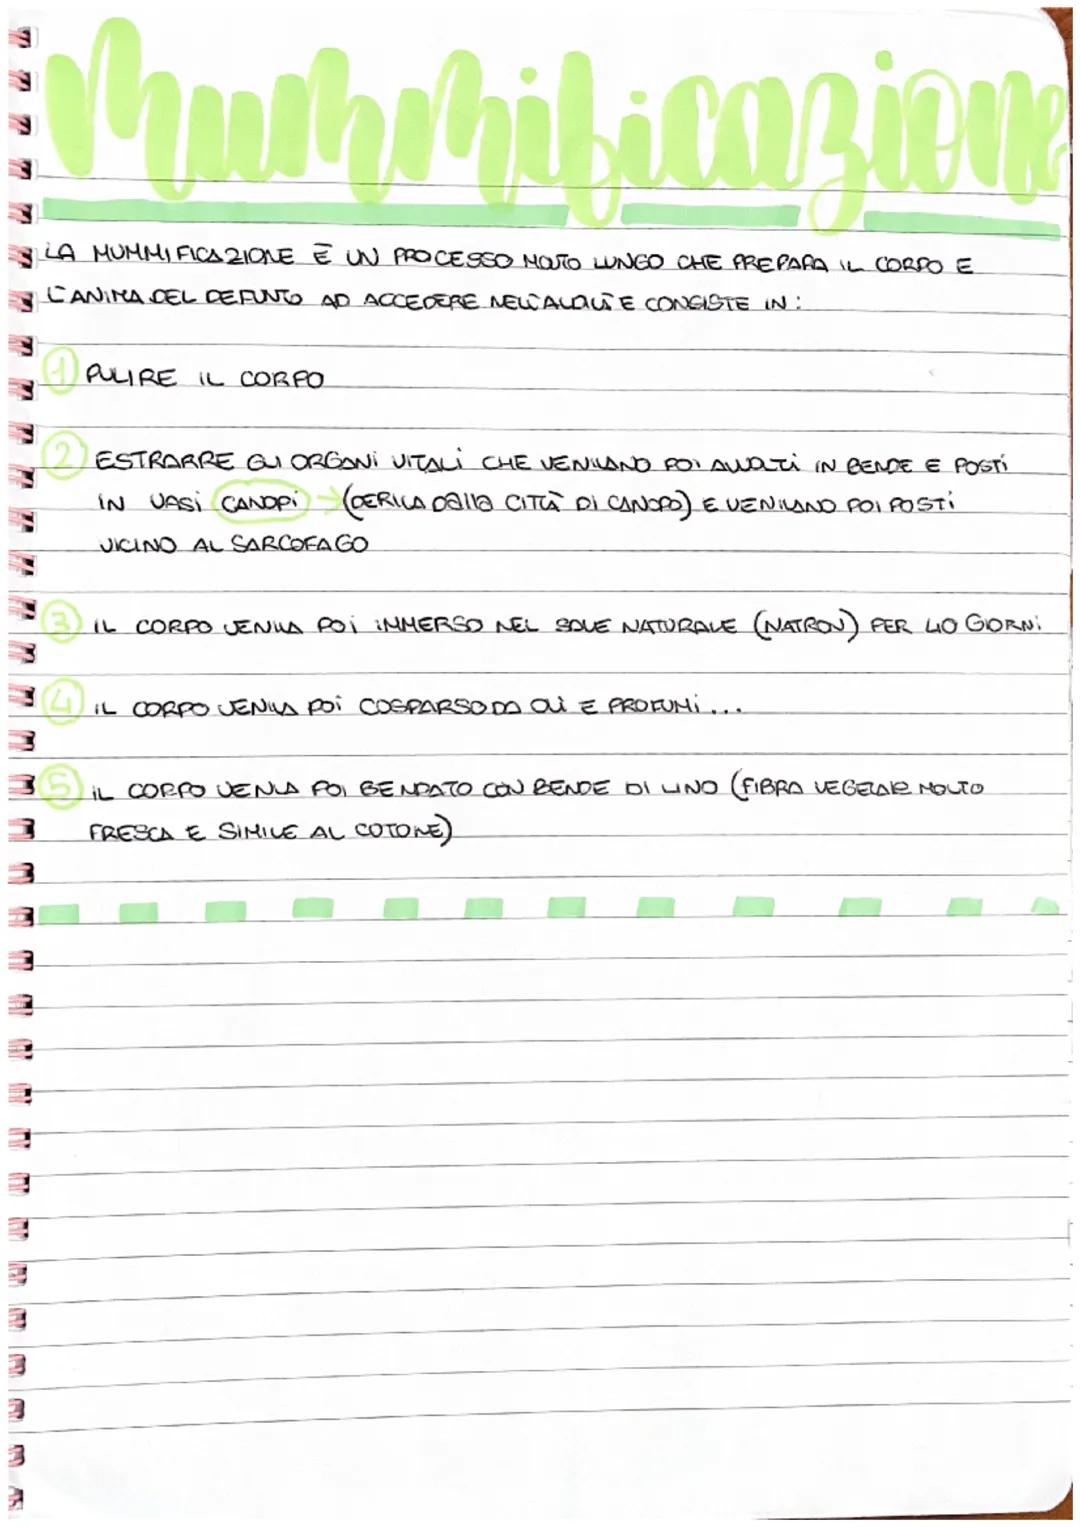 Mummificazione
LA MUMMIFICAZIONE È UN PROCESSO MOLTO LUNGO CHE PREPARA IL CORPO E
L'ANIMA DEL DEFUNTO AD ACCEDERE NELL'ALDILÀ E CONSISTE IN:
1 PULIRE IL CORPO
2 ESTRARRE GLI ORGANI VITALI CHE VENIVANO POI AVVOLTI IN BENDE E POSTI
IN VASI CANOPI → (DERIVA DALLA CITTÀ DI CANOPO) E VENIVANO POI POSTI
VICINO AL SARCOFAGO
3 IL CORPO VENIVA POI IMMERSO NEL SALE NATURALE (NATRON) PER 40 GIORNI
4 IL CORPO VENIVA POI COSPARSO DA OLI E PROFUMI...
5 IL CORPO VENIVA POI BENDATO CON BENDE DI LINO (FIBRA VEGETALE MOLTO
FRESCA E SIMILE AL COTONE)